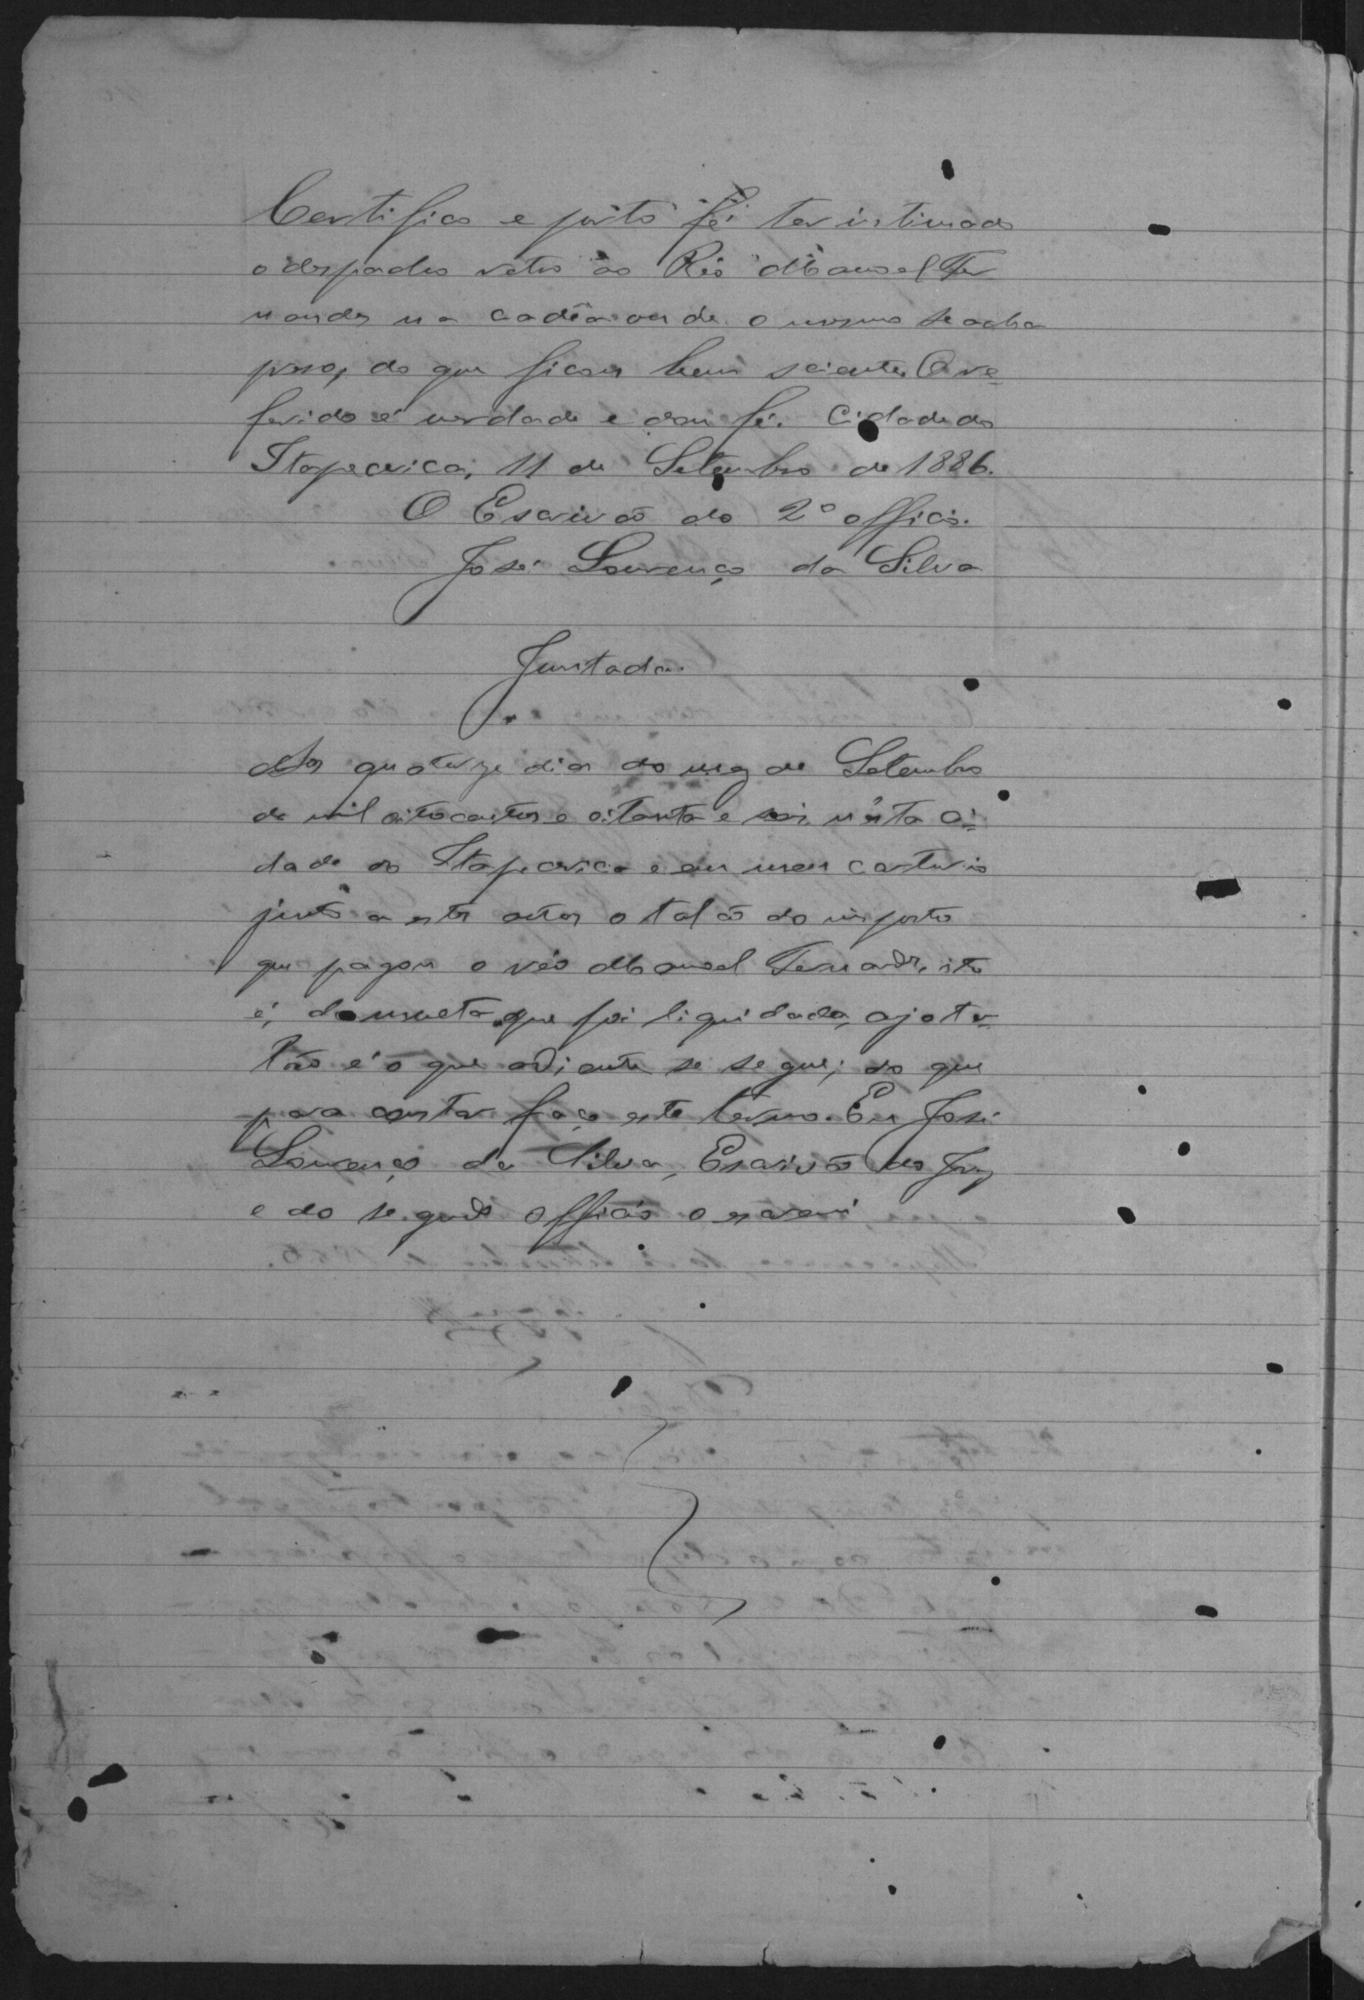 Certifico e pórto fé ter intimado
o despacho retro ao Réo Manoel Fer
nandes na cadêa onde o mesmo se acha
preso, do que ficou bem sciente. O re-
ferido é verdade e dou fé. Cidade do
Itapecerica, 11 de Setembro de 1886.
O Escrivão do 2º officio.
José Lourenço da Silva
Juntada.
Aos quatorze dias do mez de Setembro
de mil oitocentos e oitenta e seis, n'esta ci-
dade do Itapecerica e em meu cartorio
junto a estes autos o talão do imposto
que pagou o réo Manoel Fernandes, isto
é, da multa que foi liquidada, cujo ta-
lão é o que adiante se segue; do que
para constar faço este termo. Eu José
Lourenço da Silva, Escrivão do Jury
e do segundo officio o escrevi